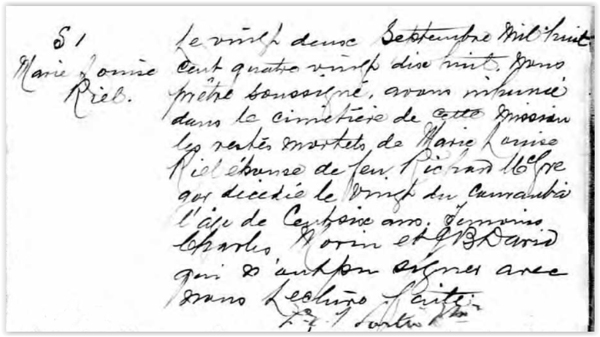 S1
Marie Louise
Riel.
Le vingt deux Septembre mil huit
cent quatre vingt dix huit. nous
prêtre soussigné, avons inhumé
dans le cimetière de cette mission
les restes mortels de Marie Louise
Riel épouse de feu Richard McGre
gor décédée le vingt du courant à
l'âge de Cent six ans. Temoins
Charles Morin et J B David
qui n'ont pu signer avec
nous Lecture faite